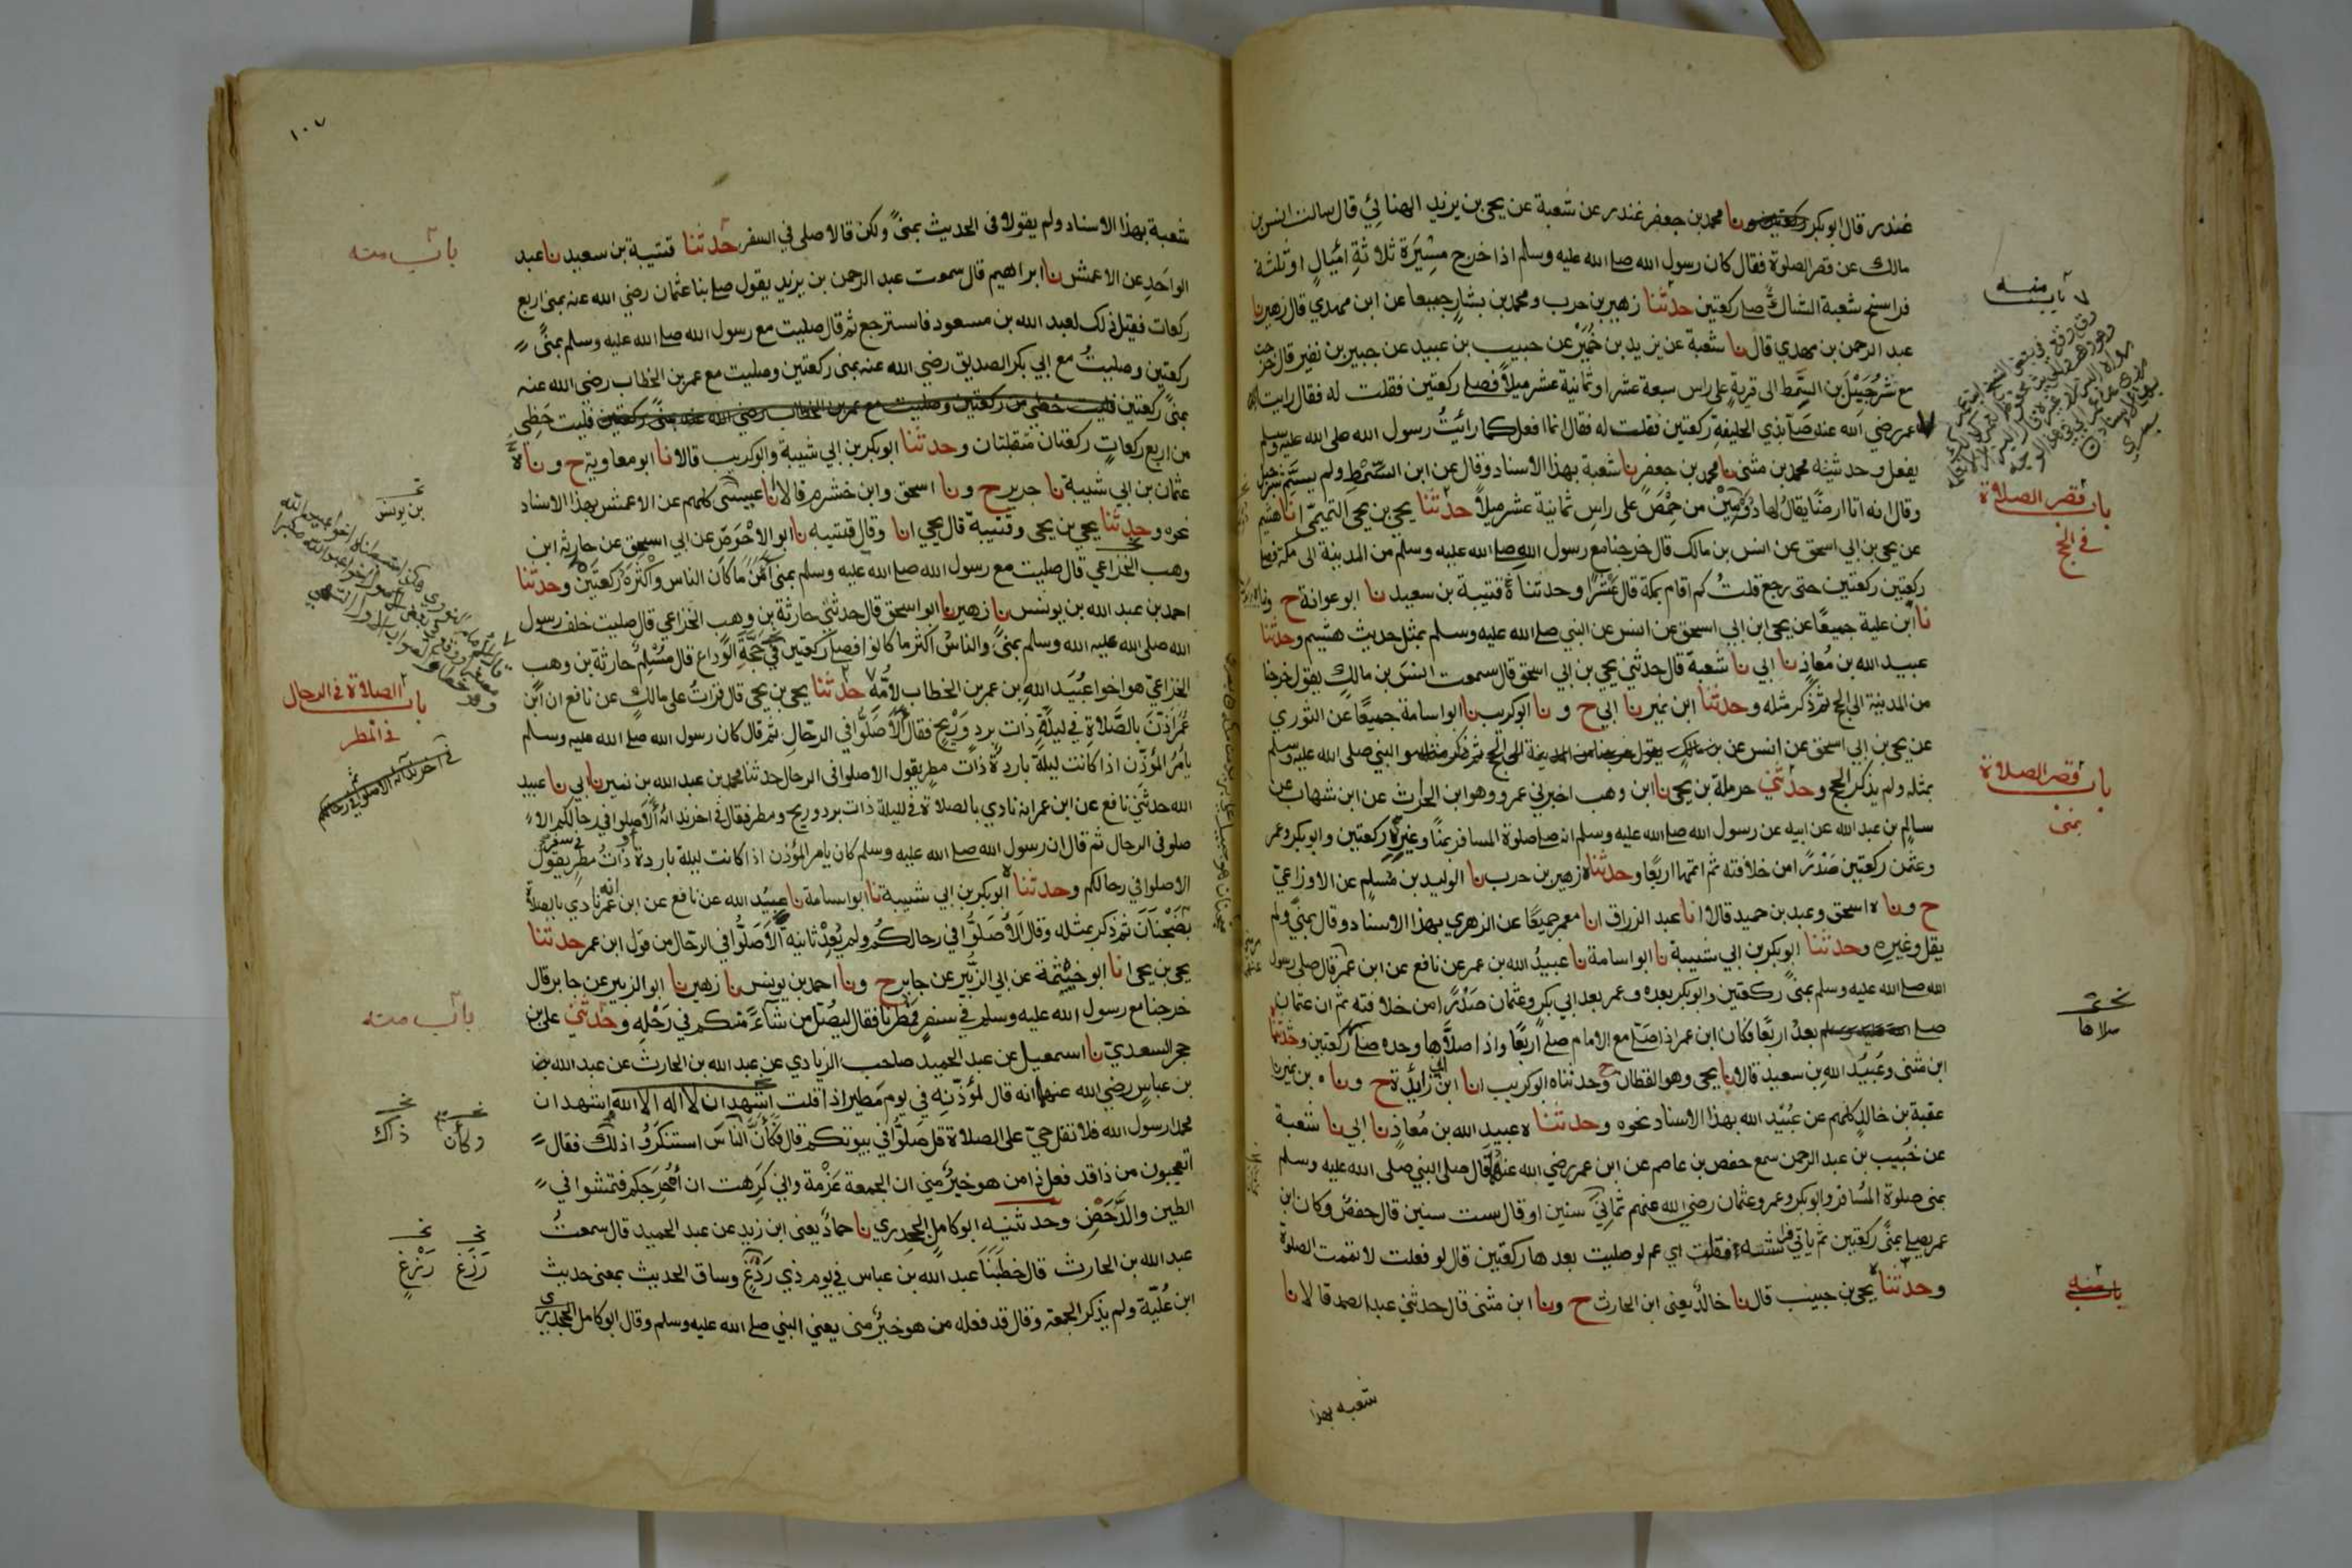 غندر قال ابو بكر نا محمد بن جعفر غندر عن شعبة عن يحيى بن يزيد الهنائي قال سالت انس بن
مالك عن قصر الصلوة فقال كان رسول الله صلى الله عليه وسلم اذا خرج مسيرة ثلاثة اميال او ثلثة
فراسخ شعبة الشاك صلى ركعتين حدثنا زهير بن حرب ومحمد بن بشار جميعا عن ابن مهدي قال زهير نا
عبد الرحمن بن مهدي قال نا شعبة عن يزيد بن خمير عن حبيب بن عبيد عن جبير بن نفير قال خرجت
مع شرحبيل بن السمط الى قرية على راس سبعة عشر او ثمانية عشر ميلا فصلى ركعتين فقلت له فقال رايت
عمر رضي الله عنه صلى بذي الحليفة ركعتين فقلت له فقال انما افعل كما رأيت رسول الله صلى الله عليه وسلم
يفعل وحدثنيه محمد بن مثنى نا محمد بن جعفر نا شعبة بهذا الاسناد وقال عن ابن السمط ولم يسم شرحبيل
وقال انه اتا ارضا يقال لها دومين من حمص على راس ثمانية عشر ميلا حدثنا يحيى بن يحيى التميمي انا هشيم
عن يحيى بن ابي اسحق عن انس بن مالك قال خرجنا مع رسول الله صلى الله عليه وسلم من المدينة الى مكة فصلى
ركعتين ركعتين حتى رجع قلت كم اقام بمكة قال عشرا وحدثناه قتيبة بن سعيد نا ابو عوانة ح ونا
نا ابن علية جميعا عن يحيى ابن ابي اسحق عن انس عن النبي صلى الله عليه وسلم بمثل حديث هشيم وحدثنا
عبيد الله بن معاذ نا ابي نا شعبة قال حدثني يحيى بن ابي اسحق قال سمعت انس بن مالك يقول خرجنا
من المدينة الى الحج ثم ذكر مثله وحدثنا ابن نمير نا ابي ح ونا ابو كريب نا ابو اسامة جميعا عن الثوري
عن يحيى بن ابي اسحق عن انس عن النبي صلى الله عليه وسلم
بمثله ولم يذكر الحج وحدثني حرملة بن يحيى نا ابن وهب اخبرني عمرو وهو ابن الحارث عن ابن شهاب عن
سالم بن عبد الله عن ابيه عن رسول الله صلى الله عليه وسلم انه صلى صلوة المسافر بمنا وغيره ركعتين وابو بكر وعمر
وعثمن ركعتين صدرا من خلافته ثم اتمها اربعا وحدثناه زهير بن حرب نا الوليد بن مسلم عن الاوزاعي
ح وناه اسحق وعبد بن حميد قالا انا عبد الرزاق انا معمر جميعا عن الزهري بهذا الاسناد وقال بمنى ولم
يقل وغيره وحدثنا ابو بكر بن ابي شيبة نا ابو اسامة نا عبيد الله بن عمر عن نافع عن ابن عمر قال صلى رسول
الله صلى الله عليه وسلم بمنى ركعتين وابو بكر بعده وعمر بعد ابي بكر وعثمان صدرا من خلافته ثم ان عثمان
صلى بعد اربعا فكان ابن عمر اذا صلى مع الامام صلى اربعا واذا صلاها وحده صلى ركعتين وحدثنا
ابن مثنى وعبيد الله بن سعيد قالا نا يحيى وهو القطان ح وحدثناه ابو كريب انا ابن ابي زائدة ح وناه بن نمير نا
عقبة بن خالد كلهم عن عبيد الله بهذا الاسناد نحوه وحدثنا ه عبيد الله بن معاذ نا ابي نا شعبة
عن خبيب بن عبد الرحمن سمع حفص بن عاصم عن ابن عمر رضي الله عنهما قال صلى النبي صلى الله عليه وسلم
بمنى صلوة المسافر وابو بكر وعمر وعثمان رضي الله عنهم ثماني سنين او قال ست سنين قال حفص وكان ابن
عمر يصلي بمنى ركعتين ثم ياتي فراشه فقلت اي عم لو صليت بعدها ركعتين قال لو فعلت لاتممت الصلوة
وحدثنا يحيى بن حبيب قال نا خالد يعني ابن الحارث ح ونا ابن مثنى قال حدثني عبد الصمد قالا نا
شعبه بهذا
باب منه
باب قصر الصلاة
في الحج
باب قصر الصلاة
بمنى
صلاها
باب منه
١٠٧
شعبة بهذا الاسناد ولم يقولا فى الحديث بمنى ولكن قالا صلى في السفر حدثنا قتيبة بن سعيد نا عبد
الواحد عن الاعمش نا ابراهيم قال سمعت عبد الرحمن بن يزيد يقول صلى بنا عثمان رضي الله عنه بمنى اربع
ركعات فقيل ذلك لعبد الله بن مسعود فاسترجع ثم قال صليت مع رسول الله صلى الله عليه وسلم بمنى
ركعتين وصليت مع ابي بكر الصديق رضي الله عنه بمنى ركعتين وصليت مع عمر بن الخطاب رضي الله عنه
بمنى ركعتين فليت حظي من ركعتين وصليت مع عمر بن الخطاب رضي الله عنه بمنى ركعتين فليت حظي
من اربع ركعات ركعتان متقبلتان وحدثنا ابو بكر بن ابي شيبة وابو كريب قالا نا ابو معاوية ح ونا ه
عثمان بن ابي شيبة نا جرير ح ونا اسحق وابن خشرم قالا انا عيسى كلهم عن الاعمش بهذا الاسناد
نحوه وحدثنا يحيى بن يحيى وقتيبة قال يحيى انا وقال قتيبه نا ابو الاحوص عن ابي اسحق عن حارثه ابن
وهب الخزاعي قال صليت مع رسول الله صلى الله عليه وسلم بمنى آمن ما كان الناس واكثره ركعتين وحدثنا
احمد بن عبد الله بن يونس نا زهير نا ابو اسحق قال حدثني حارثة بن وهب الخزاعي قال صليت خلف رسول
الله صلى الله عليه وسلم بمنى والناس اكثر ما كانوا فصلى ركعتين في حجة الوداع قال مسلم حارثة بن وهب
الخزاعي هو اخو عبيد الله بن عمر بن الخطاب لامه حدثنا يحيى بن يحيى قال قرات على مالك عن نافع ان ابن
عمر اذن بالصلاة في ليلة ذات برد وريح فقال الا صلوا في الرحال ثم قال كان رسول الله صلى الله عليه وسلم
يامر المؤذن اذا كانت ليلة باردة ذات مطر يقول الا صلوا فى الرحال حدثنا محمد بن عبد الله بن نمير نا ابي نا عبيد
الله حدثني نافع عن ابن عمر انه نادي بالصلاة في ليلة ذات برد وريح ومطر فقال في اخر ندائه ألا صلوا في رحالكم الا
صلو فى الرحال ثم قال ان رسول الله صلى الله عليه وسلم كان يامر المؤذن اذا كانت ليلة باردة او ذات مطر في سفر يقول
الا صلوا في رحالكم وحدثنا ه ابو بكر بن ابي شيبة نا ابو اسامة نا عبيد الله عن نافع عن ابن عمر انه نادي بالصلاة
بضجنان ثم ذكر بمثله وقال الا صلوا في رحالكم ولم يعد ثانيه الا صلوا في الرحال من قول ابن عمر حدثنا
يحيى بن يحيى انا ابو خيثمة عن ابي الزبير عن جابر ح ونا احمد بن يونس نا زهير نا ابو الزبير عن جابر قال
خرجنا مع رسول الله عليه وسلم في سفر فمطرنا فقال ليصل من شاء منكم في رحله وحدثني علي بن
حجر السعدي نا اسمعيل عن عبد الحميد صاحب الزيادي عن عبد الله بن الحارث عن عبد الله
بن عباس رضي الله عنهما انه قال لمؤذنه في يوم مطير اذا قلت اشهد ان لا اله الا الله اشهد ان
محمد ارسول الله فلا تقل حي على الصلاة قل صلوا في بيوتكم قال فكأن الناس استنكروا ذلك فقال
اتعجبون من ذا قد فعل ذا من هو خير مني ان الجمعة عزمة واني كرهت ان أحرجكم فتمشوا في
الطين والدحض وحدثنيه ابو كامل الجحدري نا حماد يعنى ابن زيد عن عبد الحميد قال سمعت
عبد الله بن الحارث قال خطبنا عبد الله بن عباس في يوم ذي ردغ وساق الحديث بمعنى حديث
ابن علية ولم يذكر الجمعه وقال قد فعله من هو خير منى يعني النبي صلى الله عليه وسلم وقال ابو كامل الجحدري
باب منه
بن يونس
باب الصلاة في الرحال
في المطر
باب منه
وكأن
ذاك
رزغ